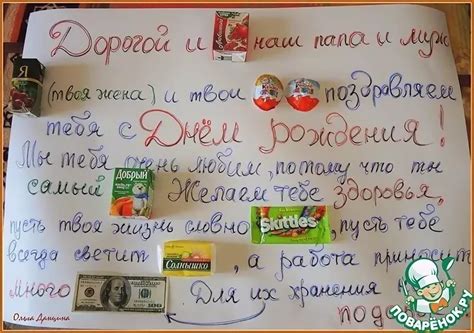 Дорогой и наш папа и муж
Я
(твоя жена) и твои поздравляем
тебя с Днём рождения!
Мы тебя очень любим, потому что ты
самый Добрый Желаем тебе здоровья,
пусть твоя жизнь словно Skittles, пусть тебе
всегда светит Солнышко, а работа приносит
много 100. Для их хранения
пода
Ольга Данцина
ПОВАРЁНОК.РУ